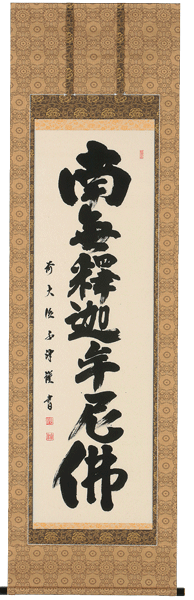 南無釋迦牟尼佛
前大徳
書